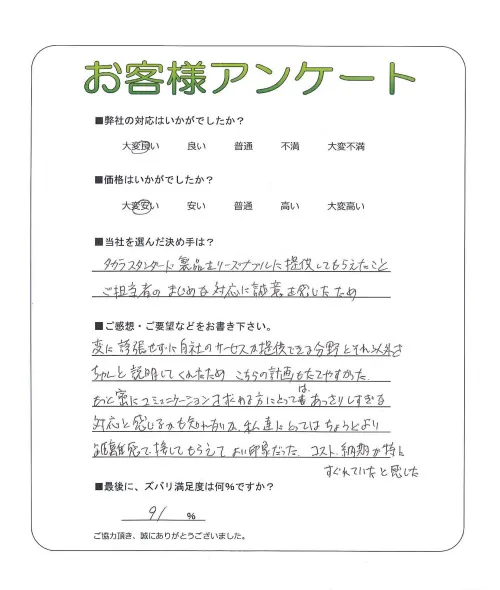 お客様アンケート
■弊社の対応はいかがでしたか？
大変良い 良い 普通 不満 大変不満
■価格はいかがでしたか？
大変安い 安い 普通 高い 大変高い
■当社を選んだ決め手は？
タカラスタンダード製品をリーズナブルに提供してもらえたこと
ご担当者のまじめな対応に誠意を感じたため
■ご感想・ご要望などをお書き下さい。
変に誇張せずに自社のサービスが提供できる分野とそれ以外を
ちゃんと説明してくれたため こちらの計画もたてやすかった。
もっと密にコミュニケーションをすがれる方にとっては あっさりしすぎる
対応と感じるかも知れないが、私達にとってはちょうどより
距離感で接してもらえて よい印象だった。コスト、納期が特に
すぐれていたと感じた
■最後に、ズバリ満足度は何％ですか？
91 ％
ご協力頂き、誠にありがとうございました。